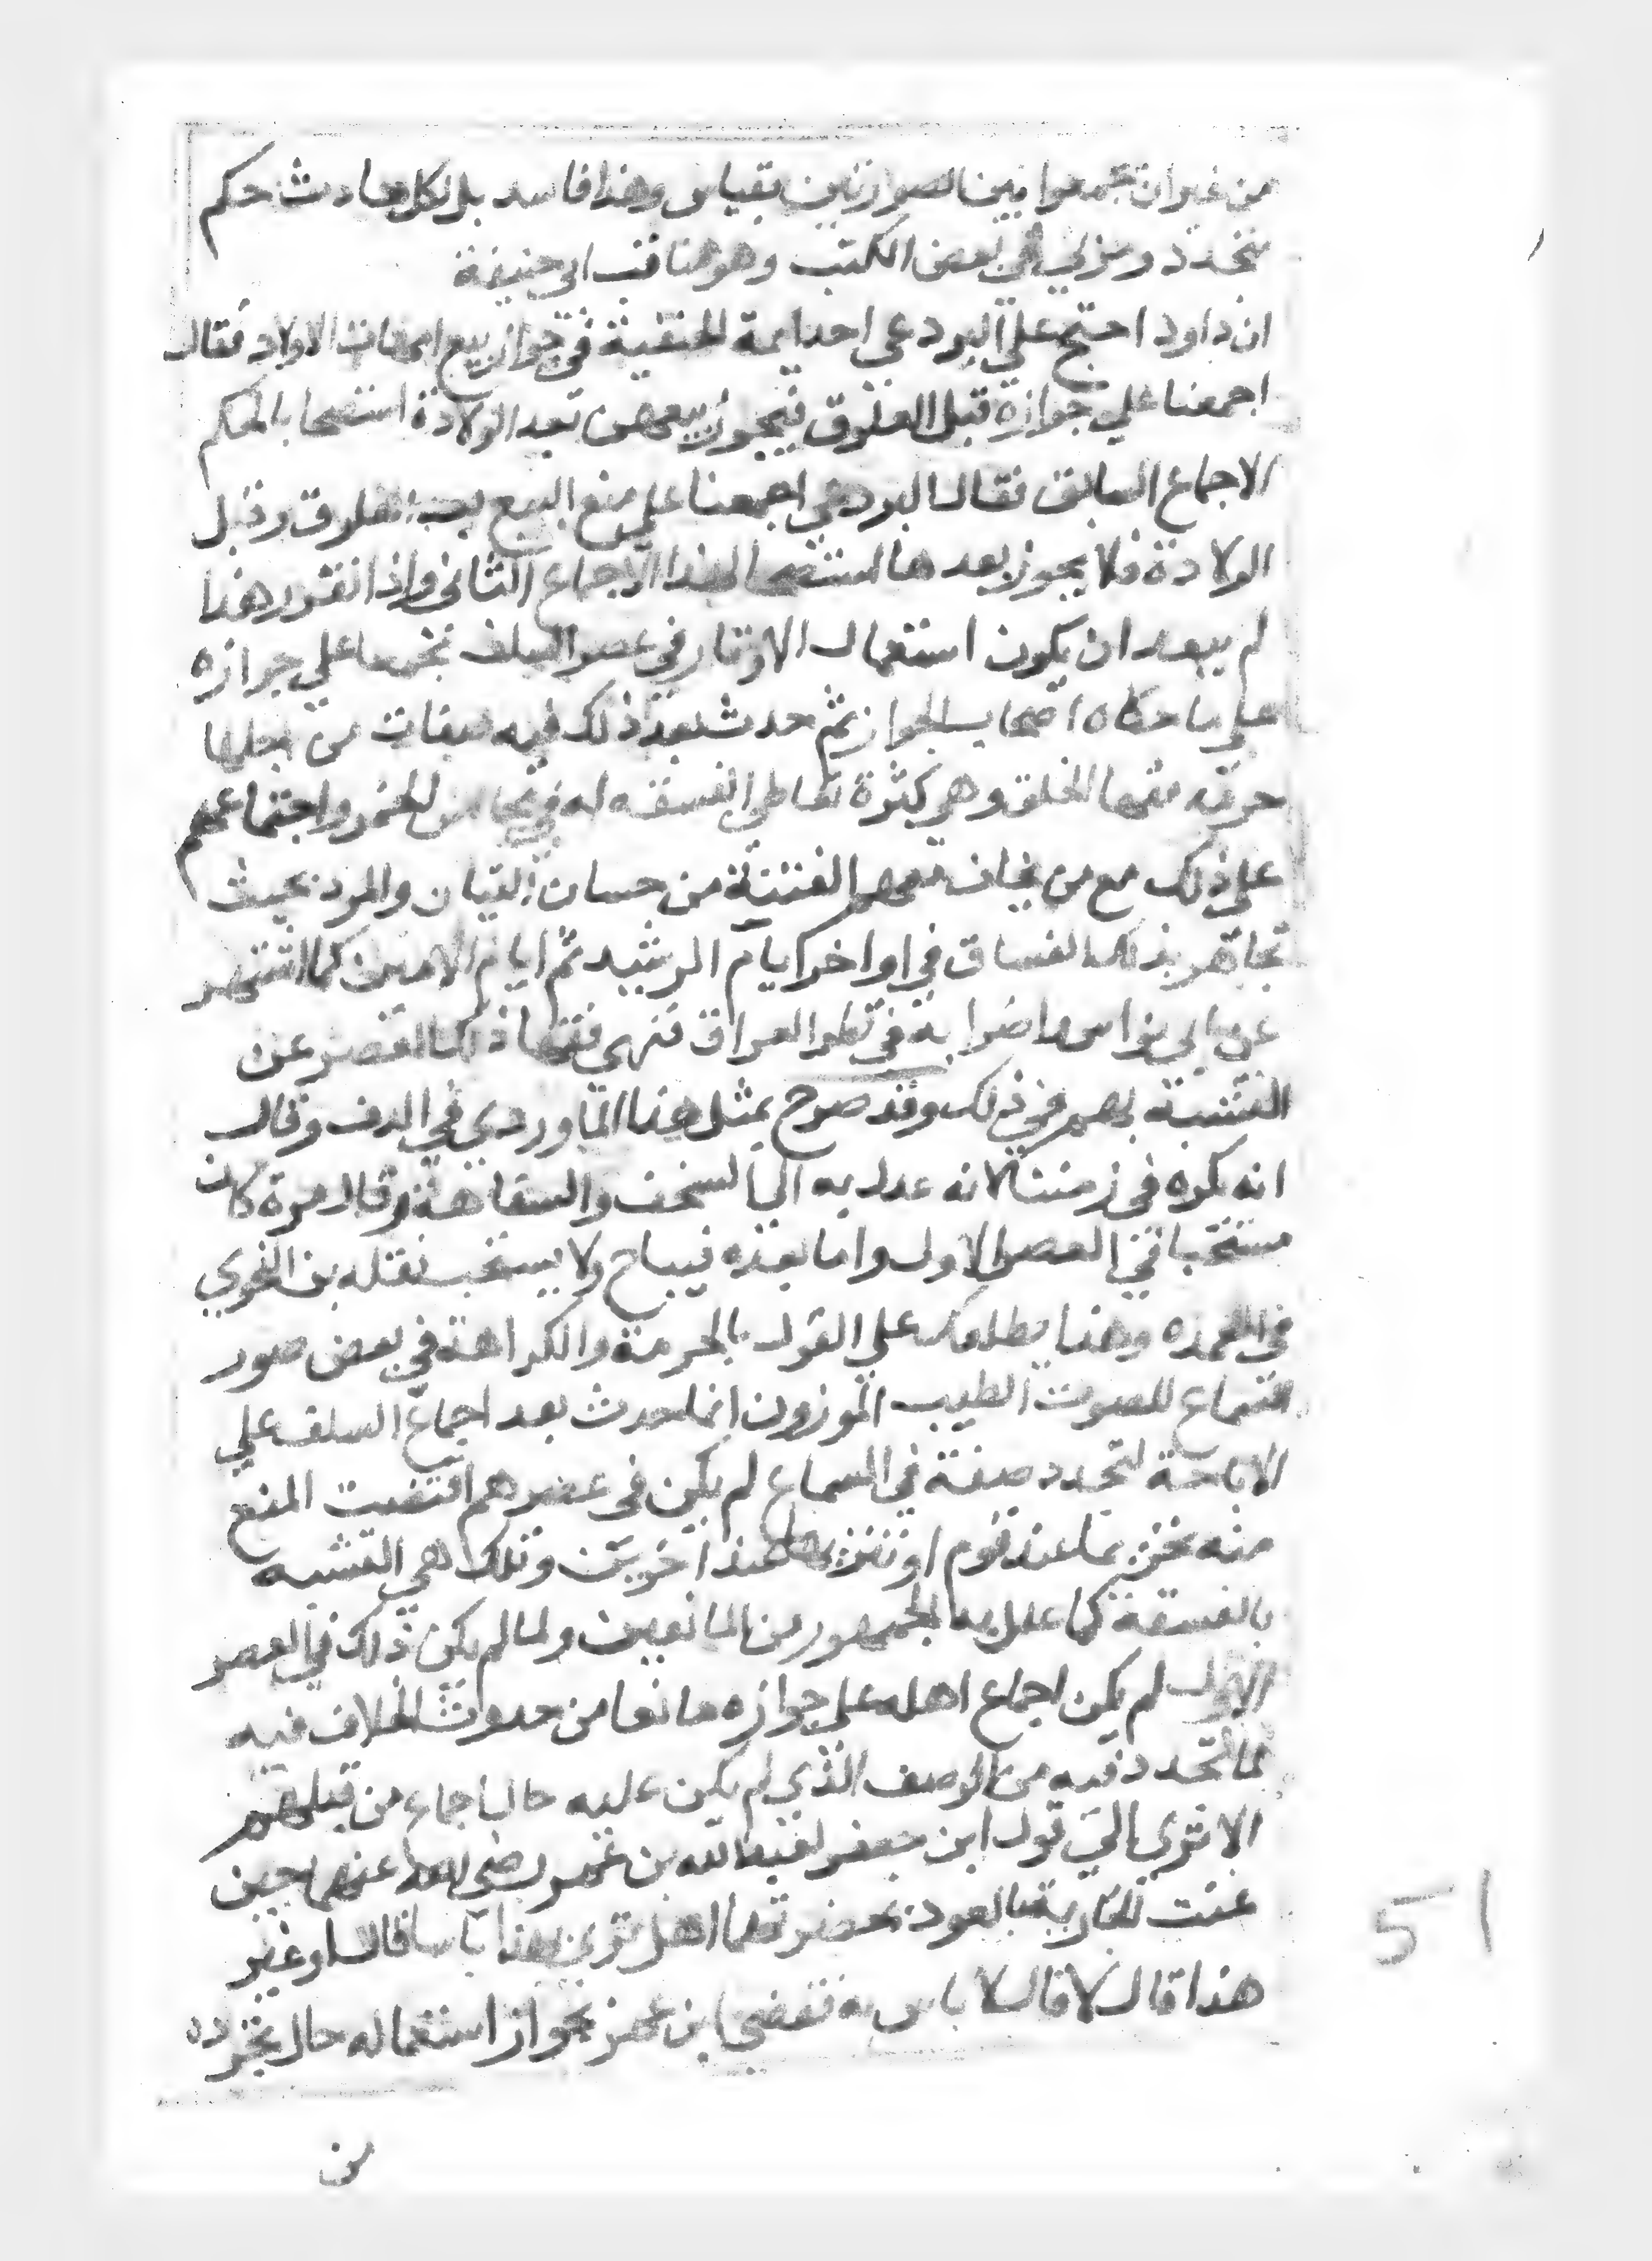 من غير ان يجمعوا بين الصورتين بقياس وهذا فاسد بل لكل حادث حكم
متجدد ومر لي في بعض الكتب وهو مناقب ابي حنيفة
ان داود احتج علي البردعي احد ايمة الحنفية في جواز بيع امهات الاولاد فقال
اجمعنا علي جوازه قبل العلوق فيجوز بيعهن بعد الولادة استصحابا لحكم
الاجماع السابق فقال البردعي اجمعنا علي منع البيع بعد العلوق وقبل
الولادة فلا يجوز بعدها استصحابا لهذا الاجماع الثاني واذا تقرر هذا
لم يبعد ان يكون استعمال الاوتار في عصر السلف مجمعا علي جوازه
علي ما حكاه اصحاب الجواز ثم حدث بعد ذلك فيه صفات من اجلها
حرمه فقها الخلق وهو كثرة تعاطي الفسقه له في مجالس الخمر واجتماعهم
علي ذلك مع من يخاف معهم الفتنة من حسان القيان والمرد بحيث
تجاهر بذلك الفساق في اواخر ايام الرشيد ثم ايام الامين كما اشتهر
عن ابي نواس واضرابه في قطر العراق فنهي فقها ذلك العصر عن
التشبة بهم في ذلك وقد صرح بمثل هذا الماوردي في الدف وقال
انه يكره في زمننا لانه عدل به الي السخف والسفاهة وقال مرة كان
مستحبا في العصر الاول واما بعده فيباح ولا يستحب نقله بن النحوي
في العمده وهذا يطلعك علي القول بالحرمة والكراهة في بعض صور
السماع للصوت الطيب الموزون انما حدث بعد اجماع السلف علي
الاباحة لتجدد صفة في السماع لم يكن في عصرهم اقتضت المنع
منه تحريما عند قوم او تنزيها عند اخريين وتلك هي التشبه
بالفسقة كما علل به الجمهور من المانعين ولما لم يكن ذلك في العصر
الاول لم يكن اجماع اهله علي جوازه مانعا من حدوث الخلاف فيه
لما تجدد فيه من الوصف الذي لم يكن عليه حال اجماع من قبلهم
الا تري الي قول ابن جعفر لعبد الله بن عمر رضي الله عنهما حين
غنت الجارية بالعود بحضرتهما هل تري بهذا باسا قال او غير
هذا قال لا قال لا باس به فقضي ابن عمر بجواز استعماله حال تجرده
من
51